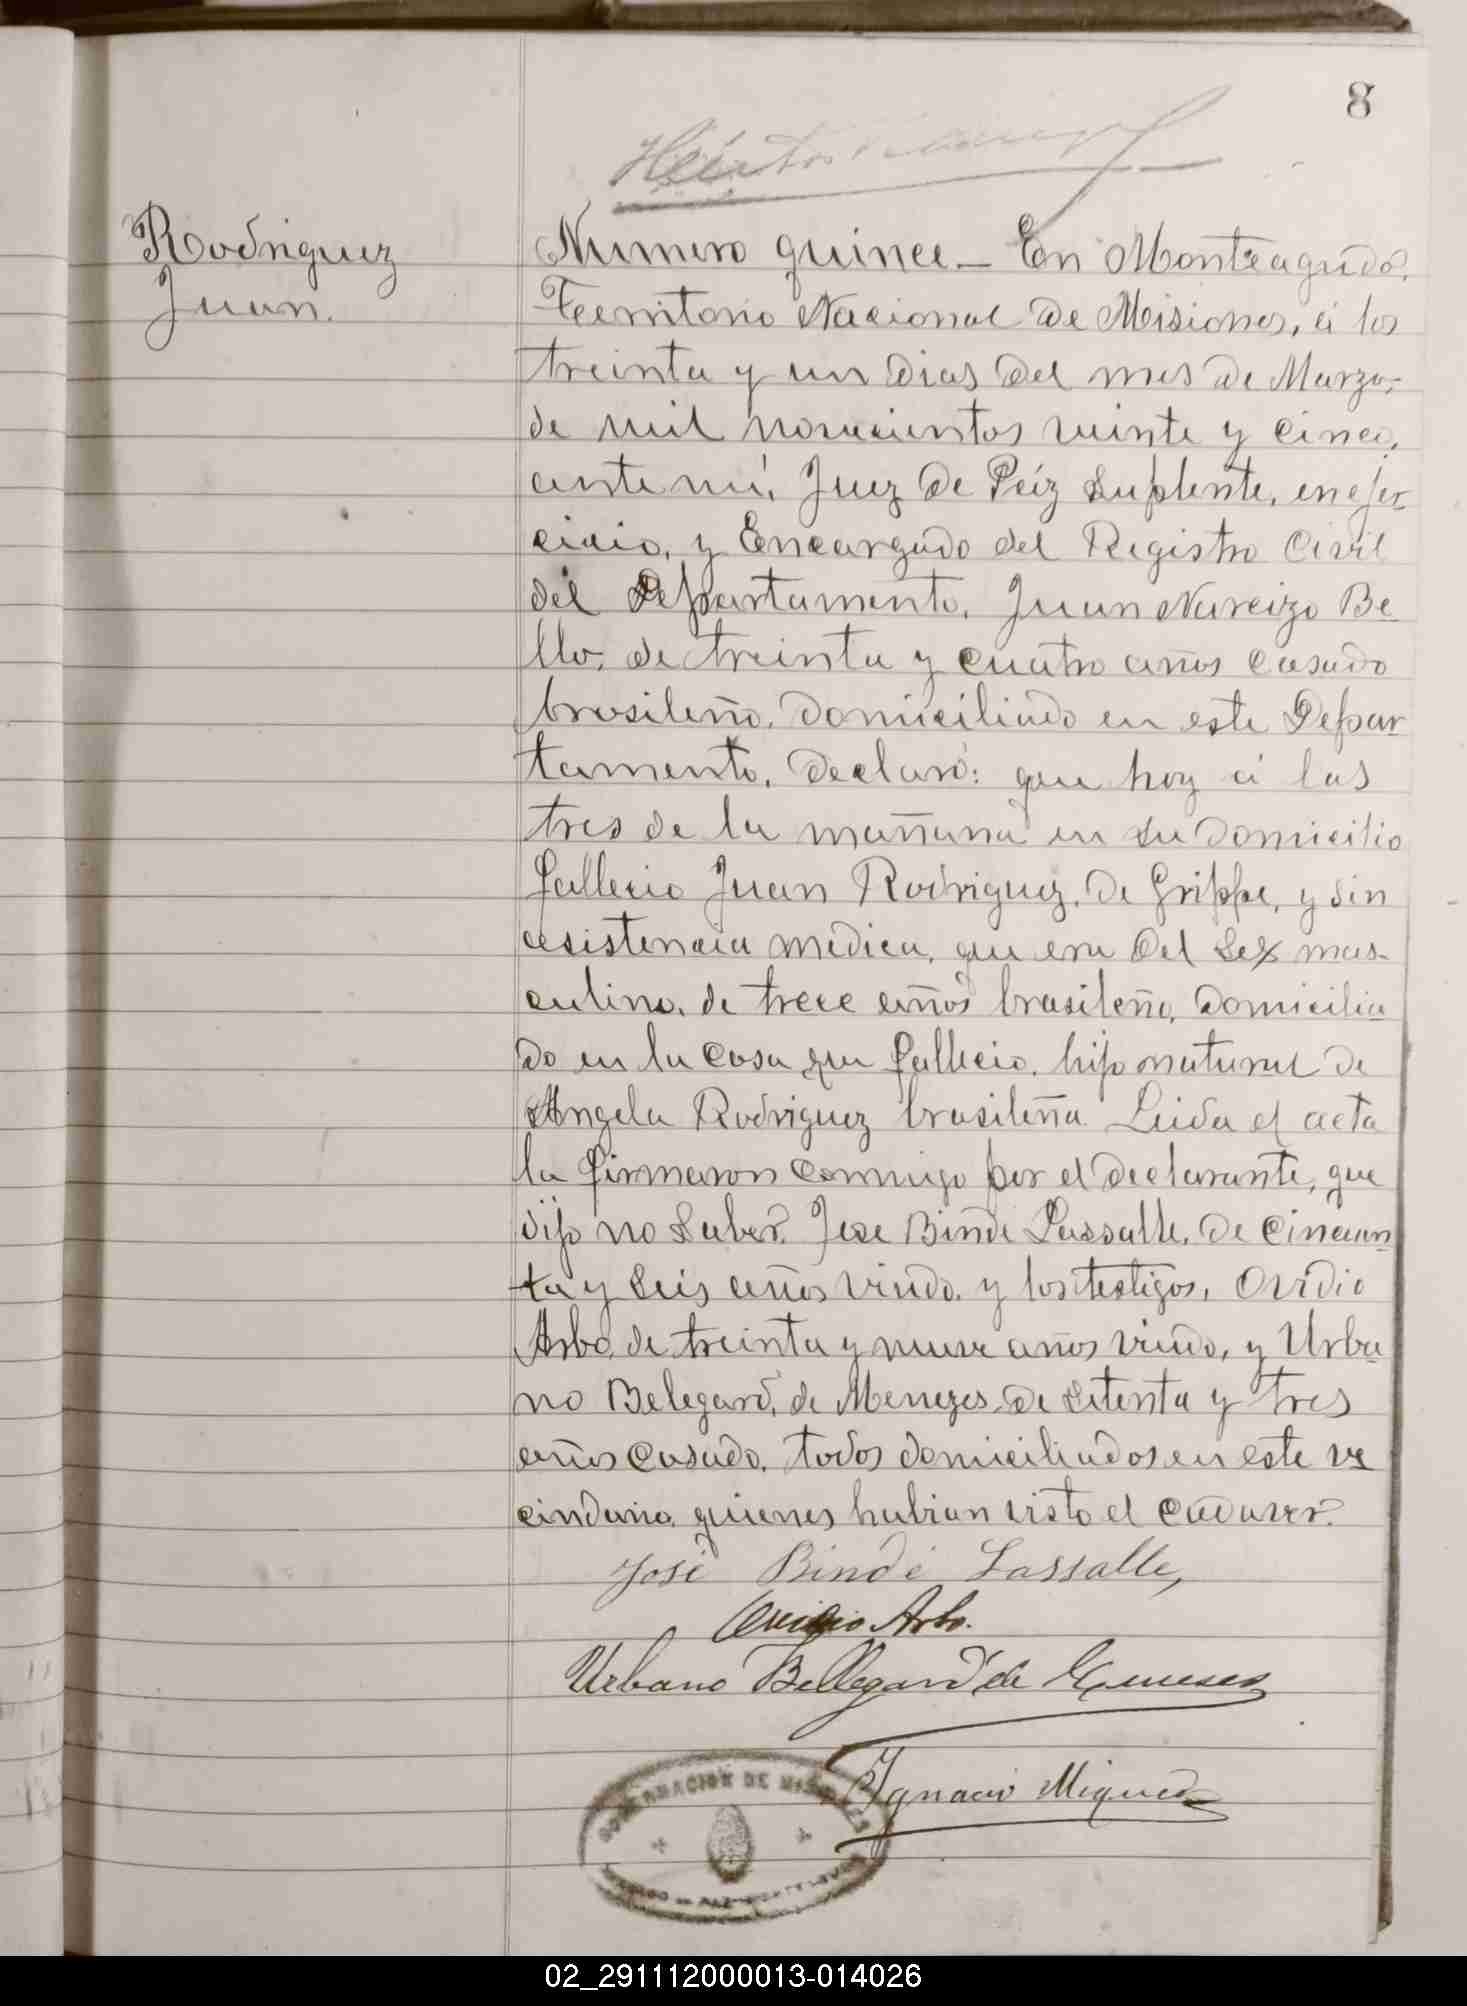 8
Rodriguez
Juan.
Numero quince — En Monteagudo,
Territorio Nacional de Misiones, á los
treinta y un dias del mes de Marzo,
de mil novecientos veinte y cinco,
ante mi, Juez de Páz Suplente, en ejer-
cicio, y Encargado del Registro Civil
del Departamento, Juan Narcizo Be-
llo, de treinta y cuatro años casado
brasileño, domiciliado en este Depar-
tamento, declaró: que hoy á las
tres de la mañana en su domicilio
fallecio Juan Rodriguez, de Grippe, y sin
asistencia medica, que era del sexo mas-
culino, de trece años brasileño, domicilia-
do en la casa que fallecio, hijo natural de
Angela Rodriguez brasileña. Leida el acta
la firmaron conmigo por el declarante, que
dijo no saber, Jose Bindé Lassalle, de cincuen-
ta y seis años viudo, y los testigos, Ovidio
Arbo, de treinta y nueve años viudo, y Urba-
no Belegard, de Menezes, de setenta y tres
años casado, todos domiciliados en este ve
cindario, quienes habian visto el cadaver.
José Bindé Lassalle,
Ovidio Arbo.
Urbano Bellegard de Meneses
Ignacio Miguel
GOBERNACION DE MISIONES
02_291112000013-014026